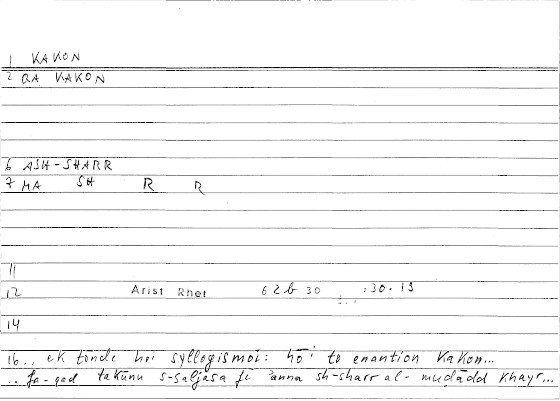 1 KAKON
2 QA KAKON
6 ASH-SHARR
7 MA SH R R
11
12 Arist Rhet 62b 30 :30.19
14
16.. ek tōnde hoi syllogismoi: hō i to enantion kakon...
.. fa-qad takūnu s-saljasa fī ʾanna sh-sharr al-muḍādd khayr...